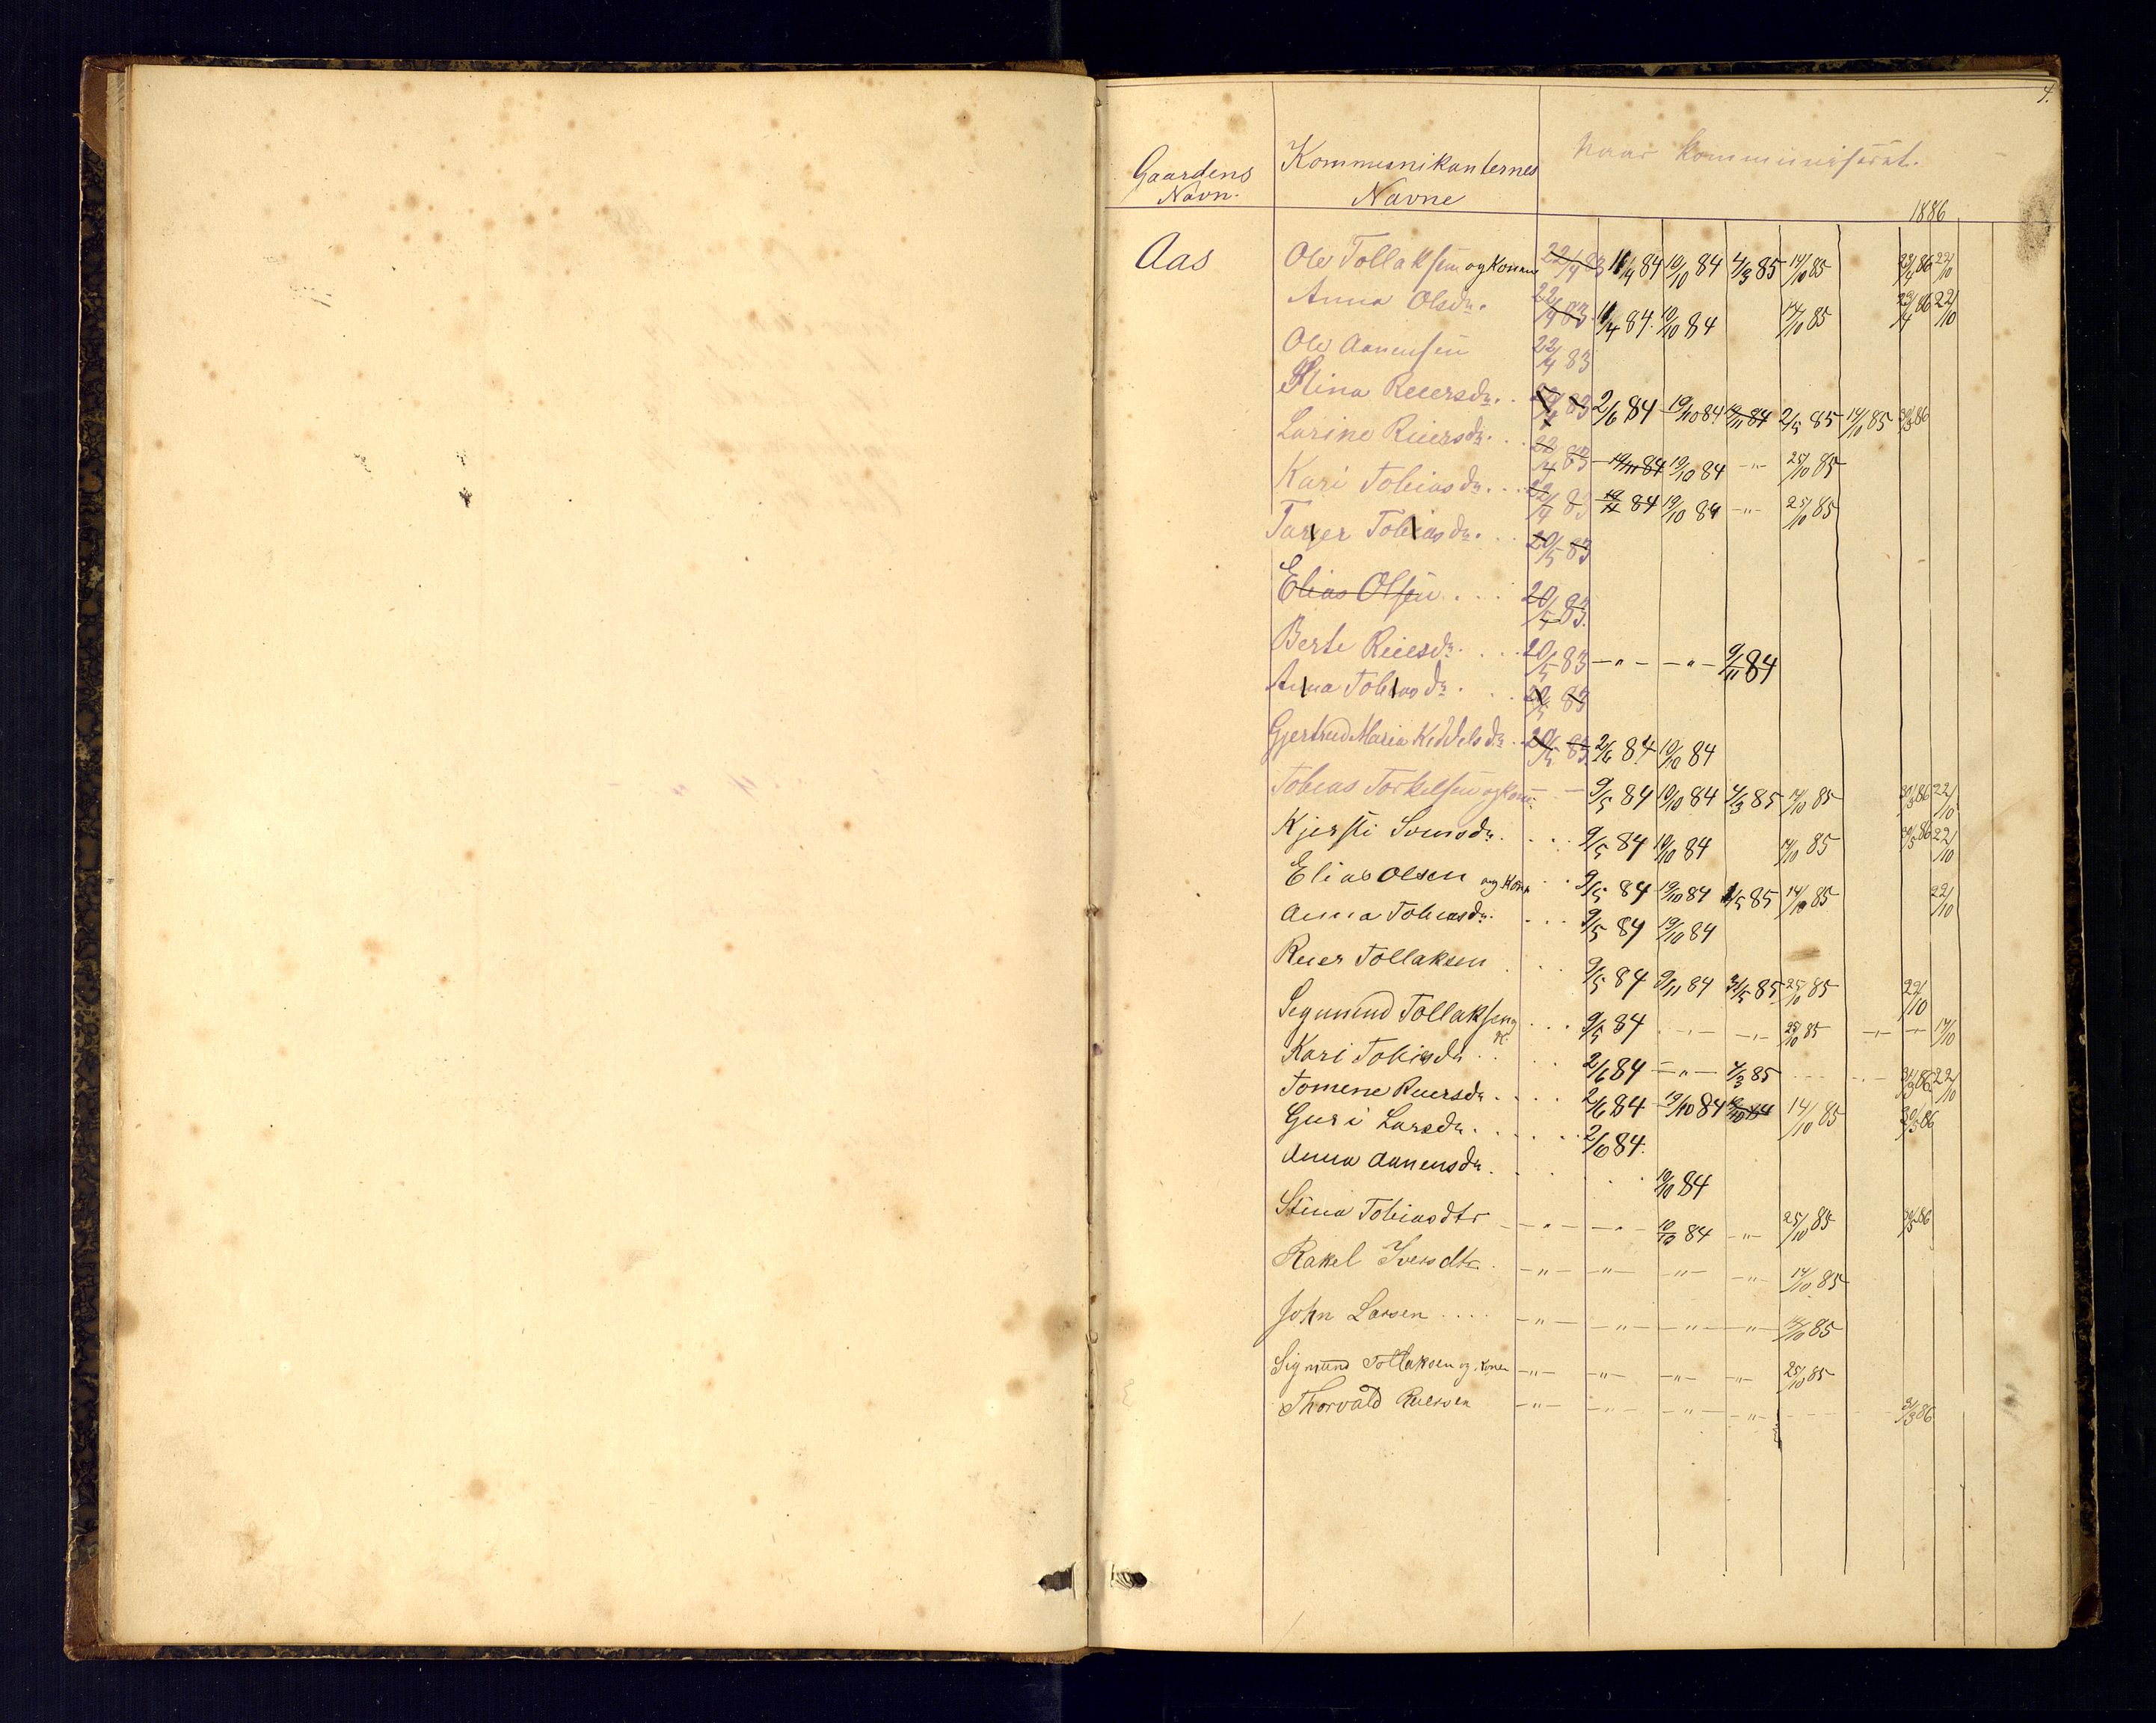 4.
Gaardens Navn. Kommunikanternes Navne Naar kommuniserat.
1886
Aas Ole Tollaksen og Konen 22/4 83 11/4 84 10/10 84 4/3 85 14/10 85 29/4 86 22/10
Anna Olsdr. 22/4 83. 11/4 84. 10/10 84 14/10 85 29/4 86 22/10
Ole Aanensen 22/4 83
Stina Reiersdr. . 83 2/6 84 19/10 84 84 2/5 85 14/10 85 86
Larine Reiersdr. . . . 22/4 83 — 84 19/10 84 — " — 25/10 85
Kari Tobiasdr. . . . 22/4 83 84 19/10 84 — " — 25/10 85
Tarjer Tobiasdr. . . . 20/5 83
Elias Olsen . . . 20/5 83.
Berte Reiesdr. . . . 20/5 83 — " — — " — 9/11 84
Anna Tobiasdr. . . . 20/5 83
Gjertrud Maria Keddelsdr. . 20/5 83. 2/6 84 10/10 84
Tobias Torkelsen og Kone — — 9/5 84 10/10 84 4/3 85 14/10 85 86 22/10
Kjersti Svensdr. . . . 9/5 84 10/10 84 14/10 85 86 22/10
Elias Olsen og Kone . . 9/5 84 19/10 84 85 14/10 85 22/10
Anna Tobiasdr. . . . 9/5 84 19/10 84
Reier Tollaksen . . . 9/5 84 9/11 84 31/5 85 25/10 85 22/10
Segmund Tollaksen og K. . . . 9/5 84 . — " — — " — 25/10 85 — " — — " — 17/10
Kari Tobiasdr . . . 2/6 84 — " — 4/3 85 86 22/10
Tomene Reiersdr . . . . 2/6 84 19/10 84 14/10 85 86
Guri Larsdr. . . . . . 2/6 84.
Anna Aanensdr. . . . . 10/10 84
Stina Tobiasdtr — " — — " — 19/10 84 — " — 25/10 85 86
Rakel Iversdtr. . — " — — " — — " — — " — 14/10 85
John Larsen . . . . — " — — " — — " — — " — 14/10 85
Sigmund Tollaksen og Konen — " — — " — — " — — " — 25/10 85
Thorvald Reiersen — " — — " — — " — — " — 31/3 86